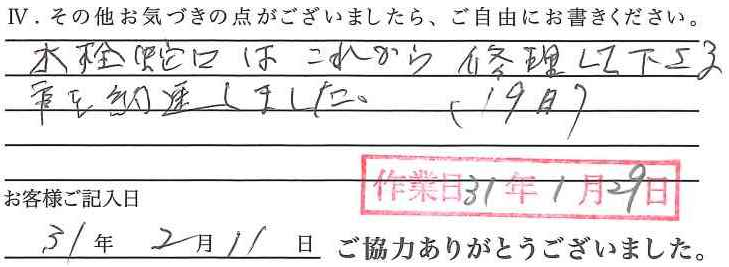 Ⅳ．その他お気づきの点がございましたら、ご自由にお書きください。
水栓蛇口はこれから修理して下さる
事を納得しました。(19日)
作業日31年1月29日
お客様ご記入日
31年2月11日 ご協力ありがとうございました。